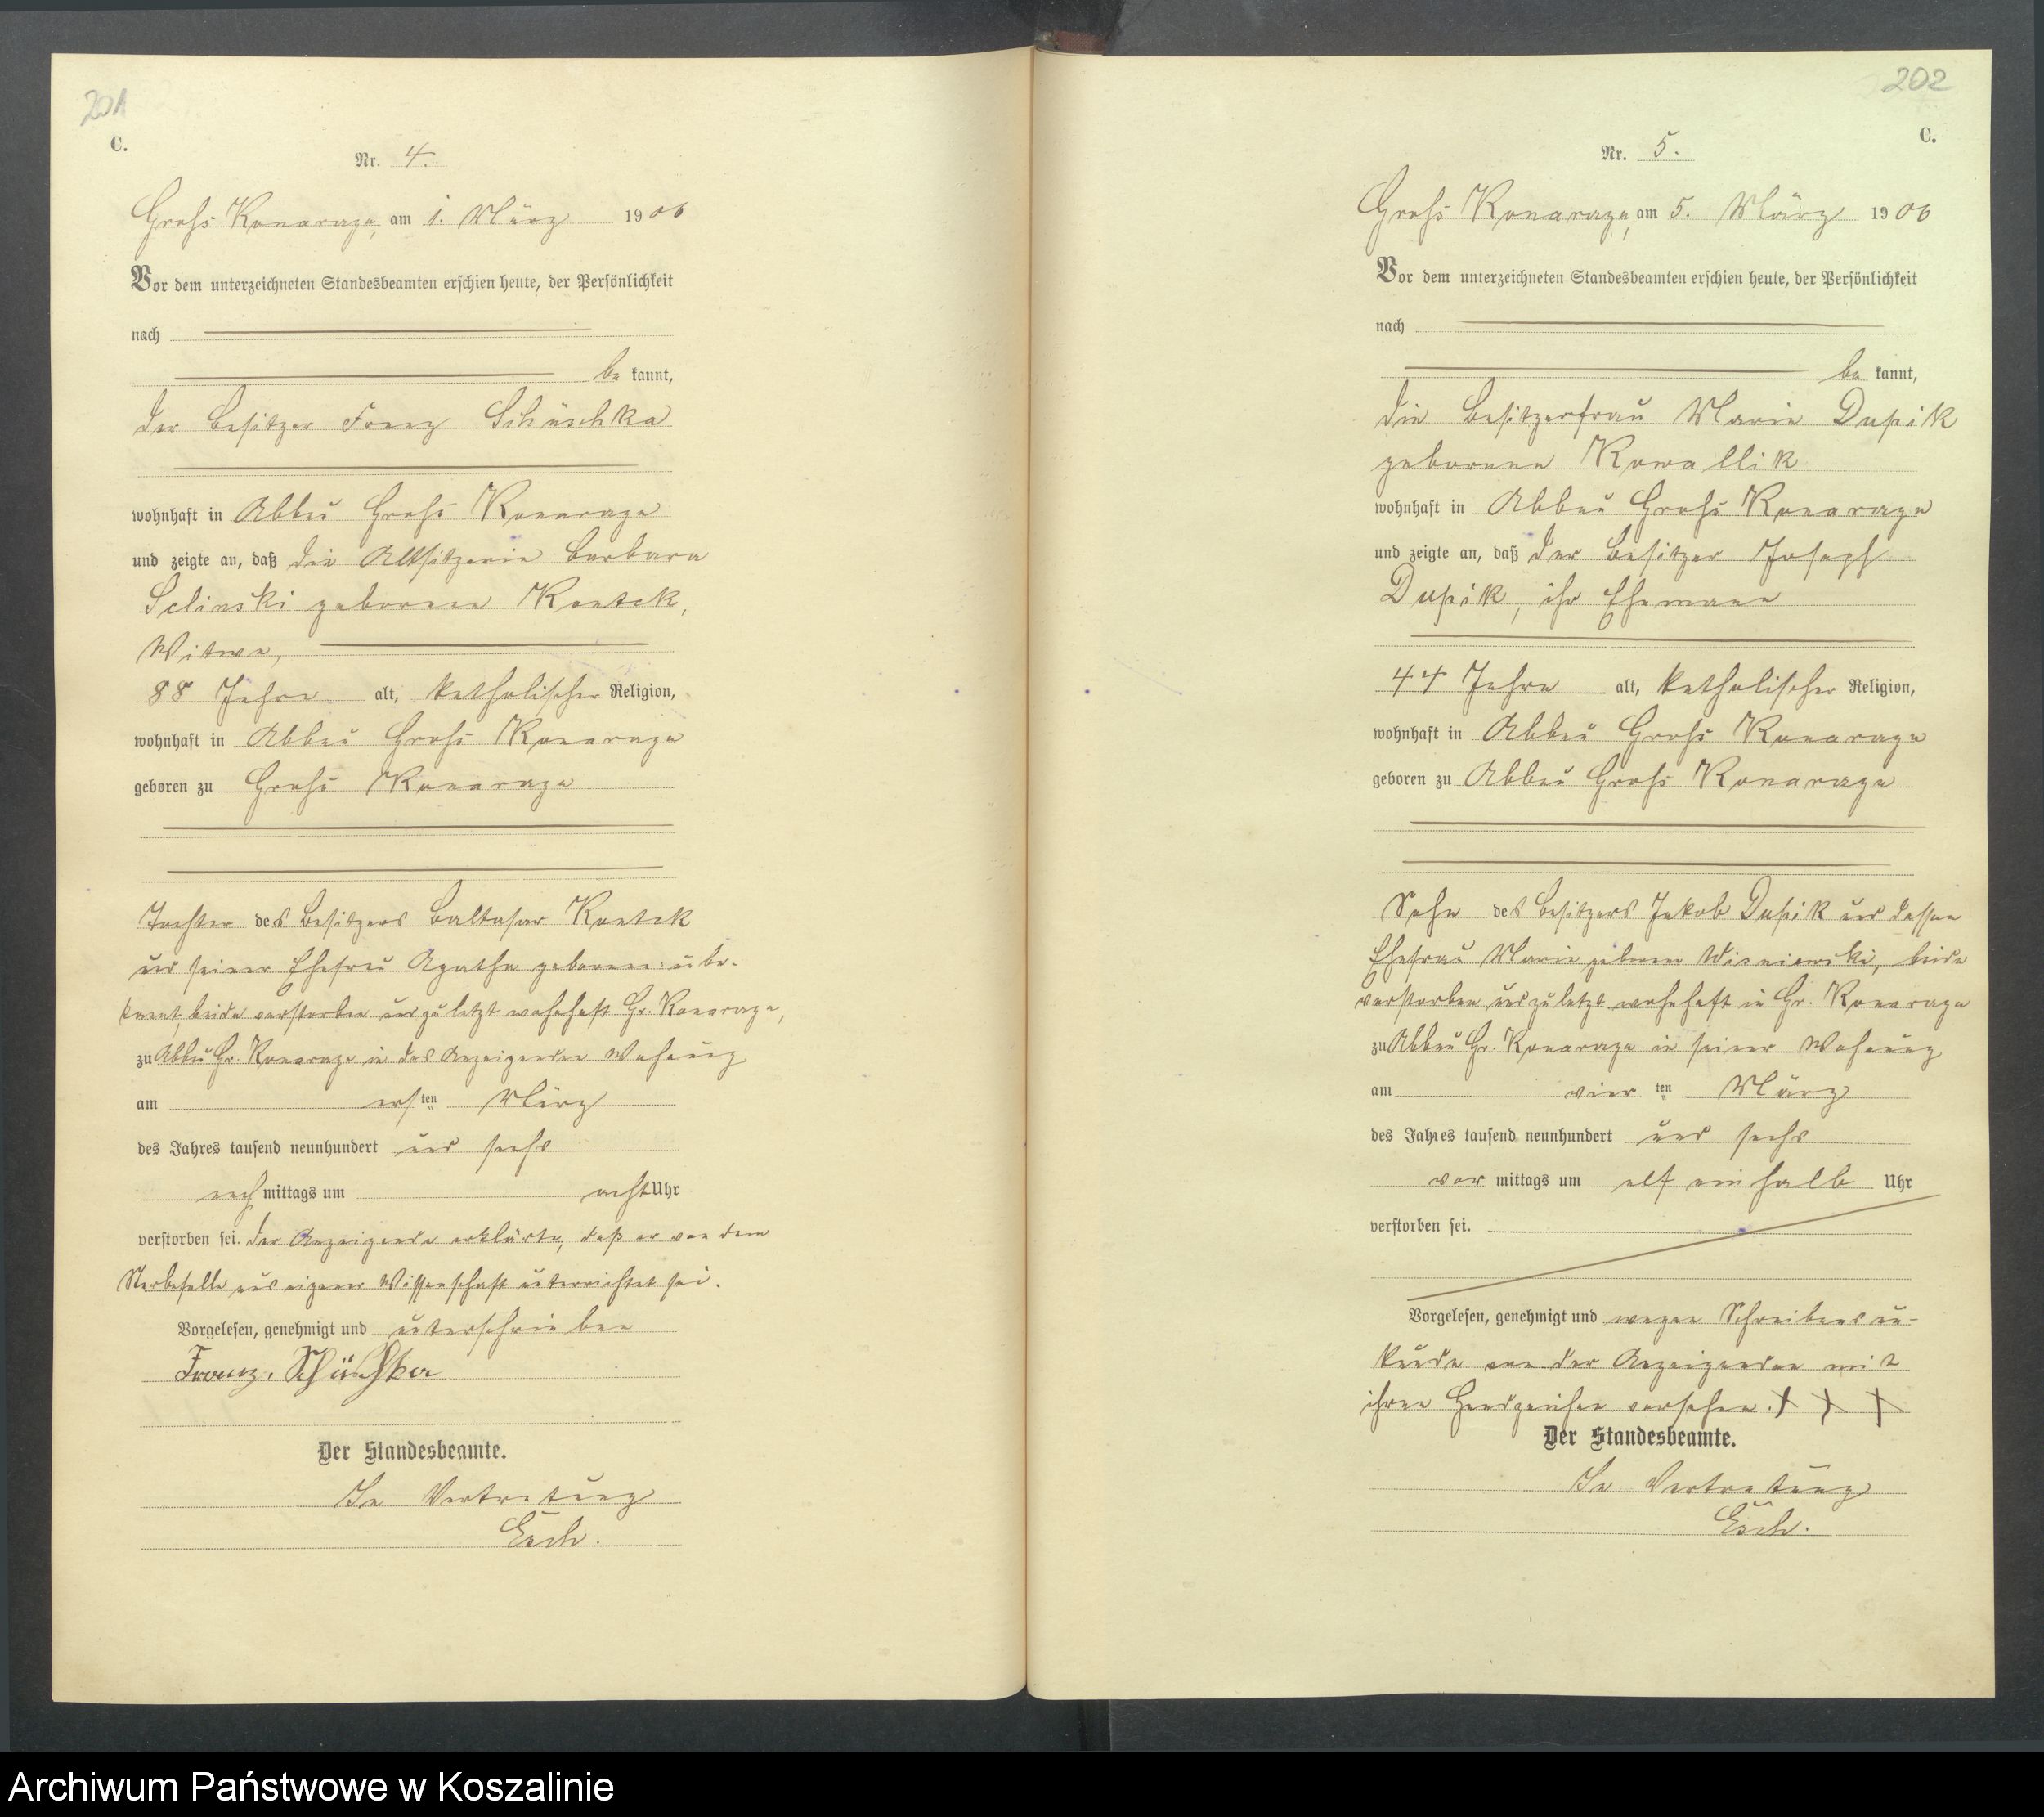 201
C.
Nr. 4.
Groß Konarzyn, am 1. März 1906
Vor dem unterzeichneten Standesbeamten erschien heute, der Persönlichkeit
nach
be kannt,
der Besitzer Franz Schüschka
wohnhaft in Abbau Groß Konarzyn
und zeigte an, daß die Altsitzerin Barbara
Selinski geborene Kontek,
Witwe,
88 Jahre alt, katholischer Religion,
wohnhaft in Abbau Groß Konarzyn
geboren zu Groß Konarzyn
Tochter des Besitzers Baltasar Kontek
und seiner Ehefrau Agatha geborene: unbe-
kannt, beide verstorben und zuletzt wohnhaft Gr. Konarzyn,
zu Abbau Gr. Konarzyn in des Anzeigenden Wohnung
am ersten März
des Jahres tausend neunhundert und sechs
nach mittags um acht Uhr
verstorben sei. Der Anzeigende erklärte, daß er von dem
Sterbefalle aus eigener Wissenschaft unterrichtet sei.
Vorgelesen, genehmigt und unterschrieben
Franz. Schüschka
Der Standesbeamte.
In Vertretung
Esch.
202
C.
Nr. 5.
Groß Konarzyn, am 5. März 1906
Vor dem unterzeichneten Standesbeamten erschien heute, der Persönlichkeit
nach
be kannt,
die Besitzerfrau Marie Dupik
geborene Kowallik
wohnhaft in Abbau Groß Konarzyn
und zeigte an, daß der Besitzer Joseph
Dupik, ihr Ehemann
44 Jahre alt, katholischer Religion,
wohnhaft in Abbau Groß Konarzyn
geboren zu Abbau Groß Konarzyn
Sohn des Besitzers Jakob Dupik und dessen
Ehefrau Marie geborene Wisniewski, beide
verstorben und zuletzt wohnhaft in Gr. Konarzyn
zu Abbau Gr. Konarzyn in seiner Wohnung
am vier ten März
des Jahres tausend neunhundert und sechs
vor mittags um elf einhalb Uhr
verstorben sei.
Vorgelesen, genehmigt und wegen Schreibensun-
kunde von der Anzeigenden mit
ihren Handzeichen versehen. + + +
Der Standesbeamte.
In Vertretung
Esch.
Archiwum Państwowe w Koszalinie